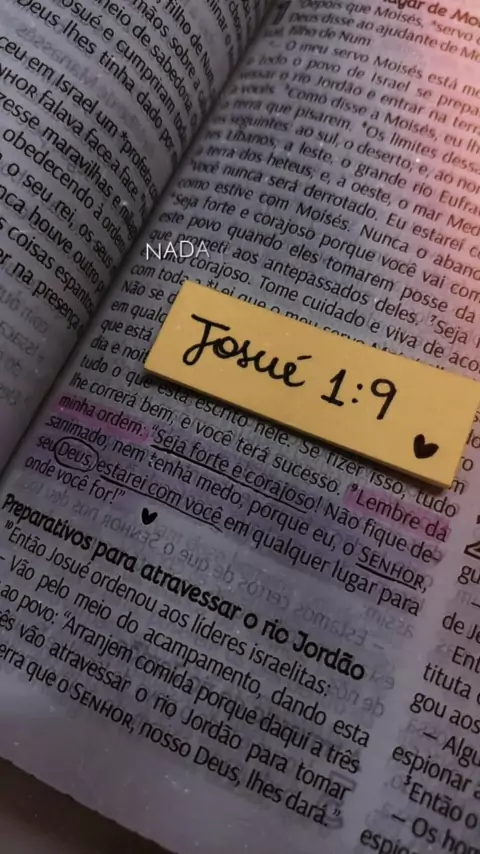 osué e cumpriram
Deus, lhes tinha dado por
ceu em Israel um *profeta
SENHOR falava face a face.
obedecendo à ordem
o seu rei, os seus
houve outro
coisas
er na presença
"Depois que Moisés, *servo
Deus disse ao ajudante de Mo
filho de Num
— O meu servo Moisés está m
o povo de Israel se prepa
o rio Jordão e entrar na terr
a vocês. ³Como disse a Moisés, eu lh
terra que pisarem. ⁴Os limites dess
seguintes: ao sul, o deserto, e, ao nor
Líbanos; a leste, o grande rio Eufra
a terra dos heteus; e, a oeste, o mar Med
Você nunca será derrotado. Eu estarei c
como estive com Moisés. Nunca o aban
⁶Seja forte e corajoso porque você vai com
este povo quando eles tomarem posse da
que prometi aos antepassados deles. ⁷Seja f
NADA
com toda corajoso. Tome cuidado e viva de aco
Não se d
em qualq
que está
dia e noit
Josué 1:9
tudo o que está escrito nele. Se fizer isso, tudo
lhe correrá bem, e você terá sucesso. ⁹Lembre da
minha ordem: "Seja forte e corajoso! Não fique de-
sanimado, nem tenha medo, porque eu, o SENHOR,
seu Deus, estarei com você em qualquer lugar para
onde você for!"
Preparativos para atravessar o rio Jordão
¹⁰Então Josué ordenou aos líderes israelitas:
— Vão pelo meio do acampamento, dando esta
ao povo: "Arranjem comida porque daqui a três
ês vão atravessar o rio Jordão para tomar
erra que o SENHOR, nosso Deus, lhes dará."
gu
—
de Je
Ent
tituta
gou aos
— Algu
espionar a
³Então o
— Os hom
espio